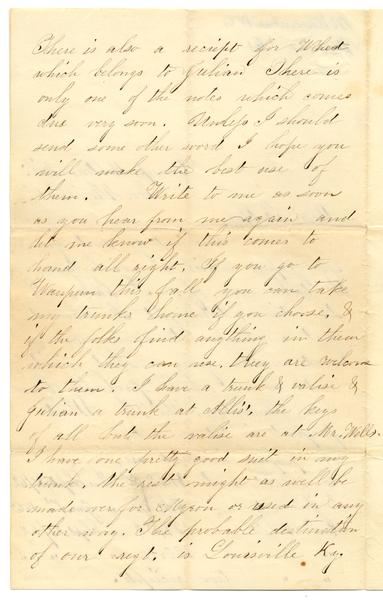 There is also a reciept for Wheat
which belongs to Julian There is
only one of the notes which comes
due very soon. Unless I should
send some other word I hope you
will make the best use of
them. Write to me as soon
as you hear from me again and
let me know if this comes to
hand all right. If you go to
Waupun this fall you can take
my trunks home if you choose, &
if the folks find anything in them
which they can use, they are welcome
to them. I have a trunk & valise &
Julian a trunk at Allis', the keys
of all but the valise are at Mr. Wells.
I have one pretty good suit in my
trunk. the rest might as well be
made over for Myron or used in any
other way. The probable destination
of our regt. is Louisville Ky.